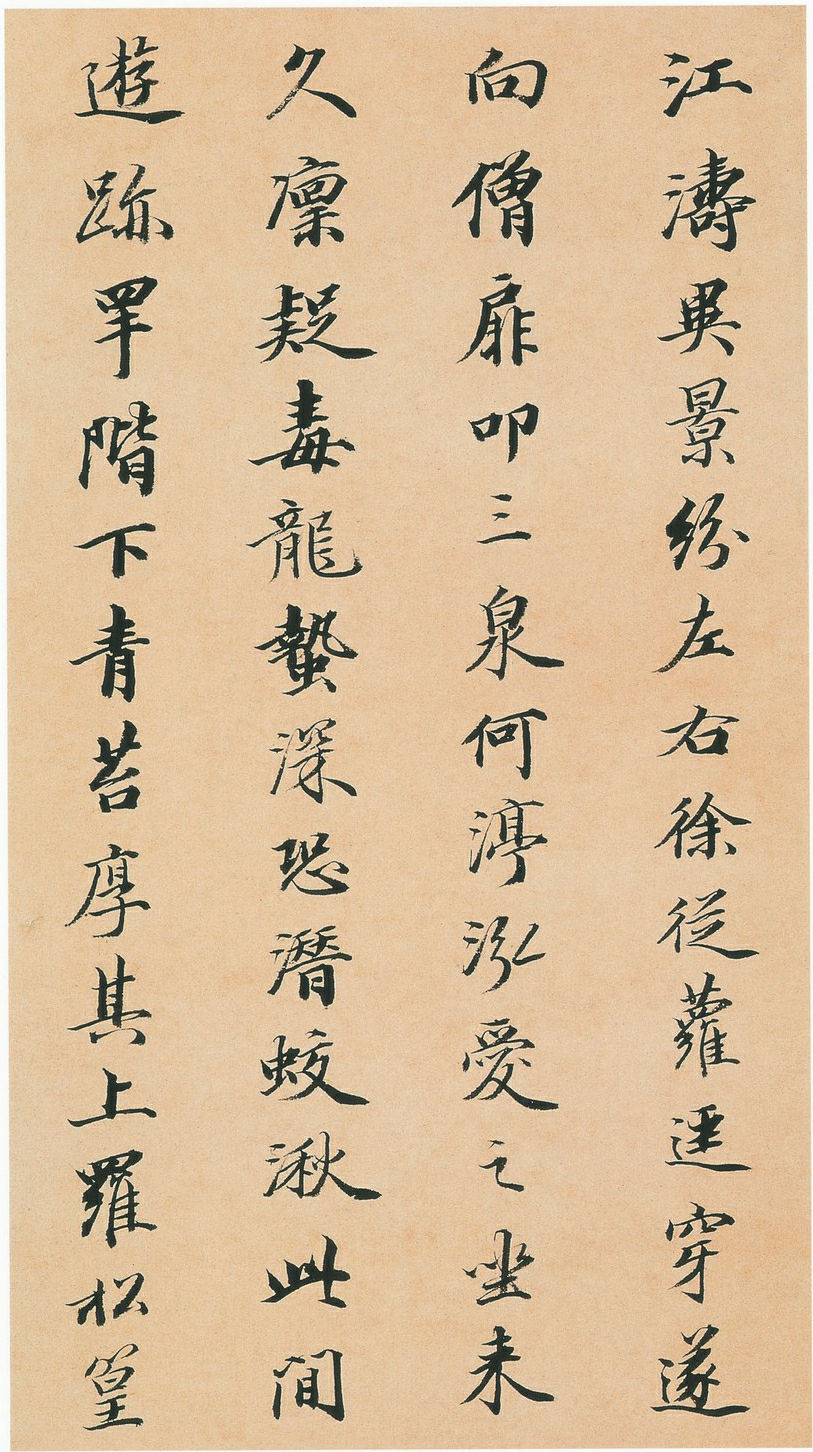 江濤異景紛左右徐從蘿逕穿遂
向僧扉叩三泉何渟泓愛之坐来
久凛疑毒龍蟄深恐潛蛟湫此間
遊跡罕階下青苔厚其上羅松篁